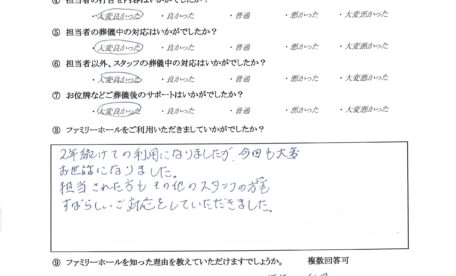 ④ 担当者の打合せ内容はいかがでしたか？
・大変良かった ・良かった ・普通 ・悪かった ・大変悪かった
⑤ 担当者の葬儀中の対応はいかがでしたか？
・大変良かった ・良かった ・普通 ・悪かった ・大変悪かった
⑥ 担当者以外、スタッフの葬儀中の対応はいかがでしたか？
・大変良かった ・良かった ・普通 ・悪かった ・大変悪かった
⑦ お位牌などご葬儀後のサポートはいかがでしたか？
・大変良かった ・良かった ・普通 ・悪かった ・大変悪かった
⑧ ファミリーホールをご利用いただきましていかがでしたか？
2年続けての利用になりましたが、今回も大変
お世話になりました。
担当された方も その他のスタッフの方も
すばらしいご対応をしていただきました。
⑨ ファミリーホールを知った理由を教えていただけますでしょうか。 複数回答可